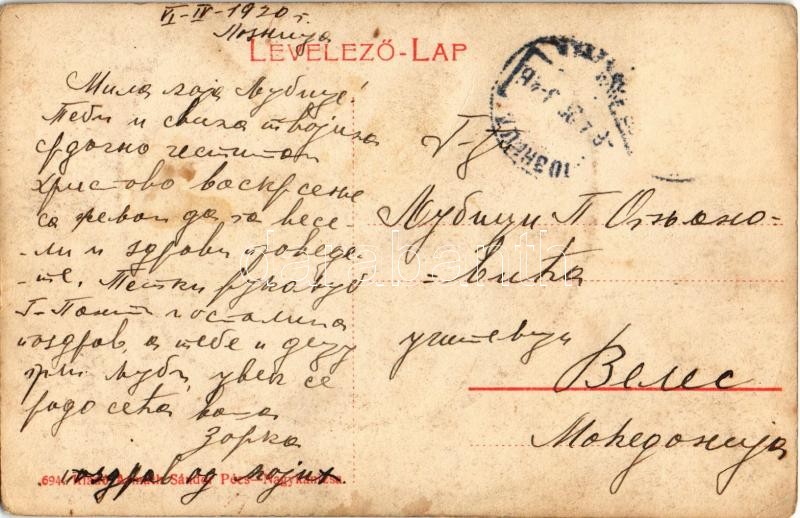 VI-IV-1920 г.
Лозница
LEVELEZŐ-LAP
Мила моја Љубице!
Теби и свима твојима
срдачно честитам
Христово васкрсење
са жељом да га весе-
-ли и здрави проведе-
-те. Тетки рукољуб
Г-Панти и осталима
поздрав, а тебе и децу
грли љуби, увек се
радо сећа ваша
Зорка
поздрав од мојих
Г-ђа
Љубици П. Огњано-
=вића
учитељици
Велес
Македонија
694. Kiadó Sándor Pécs—Nagykanizsa
darabanth